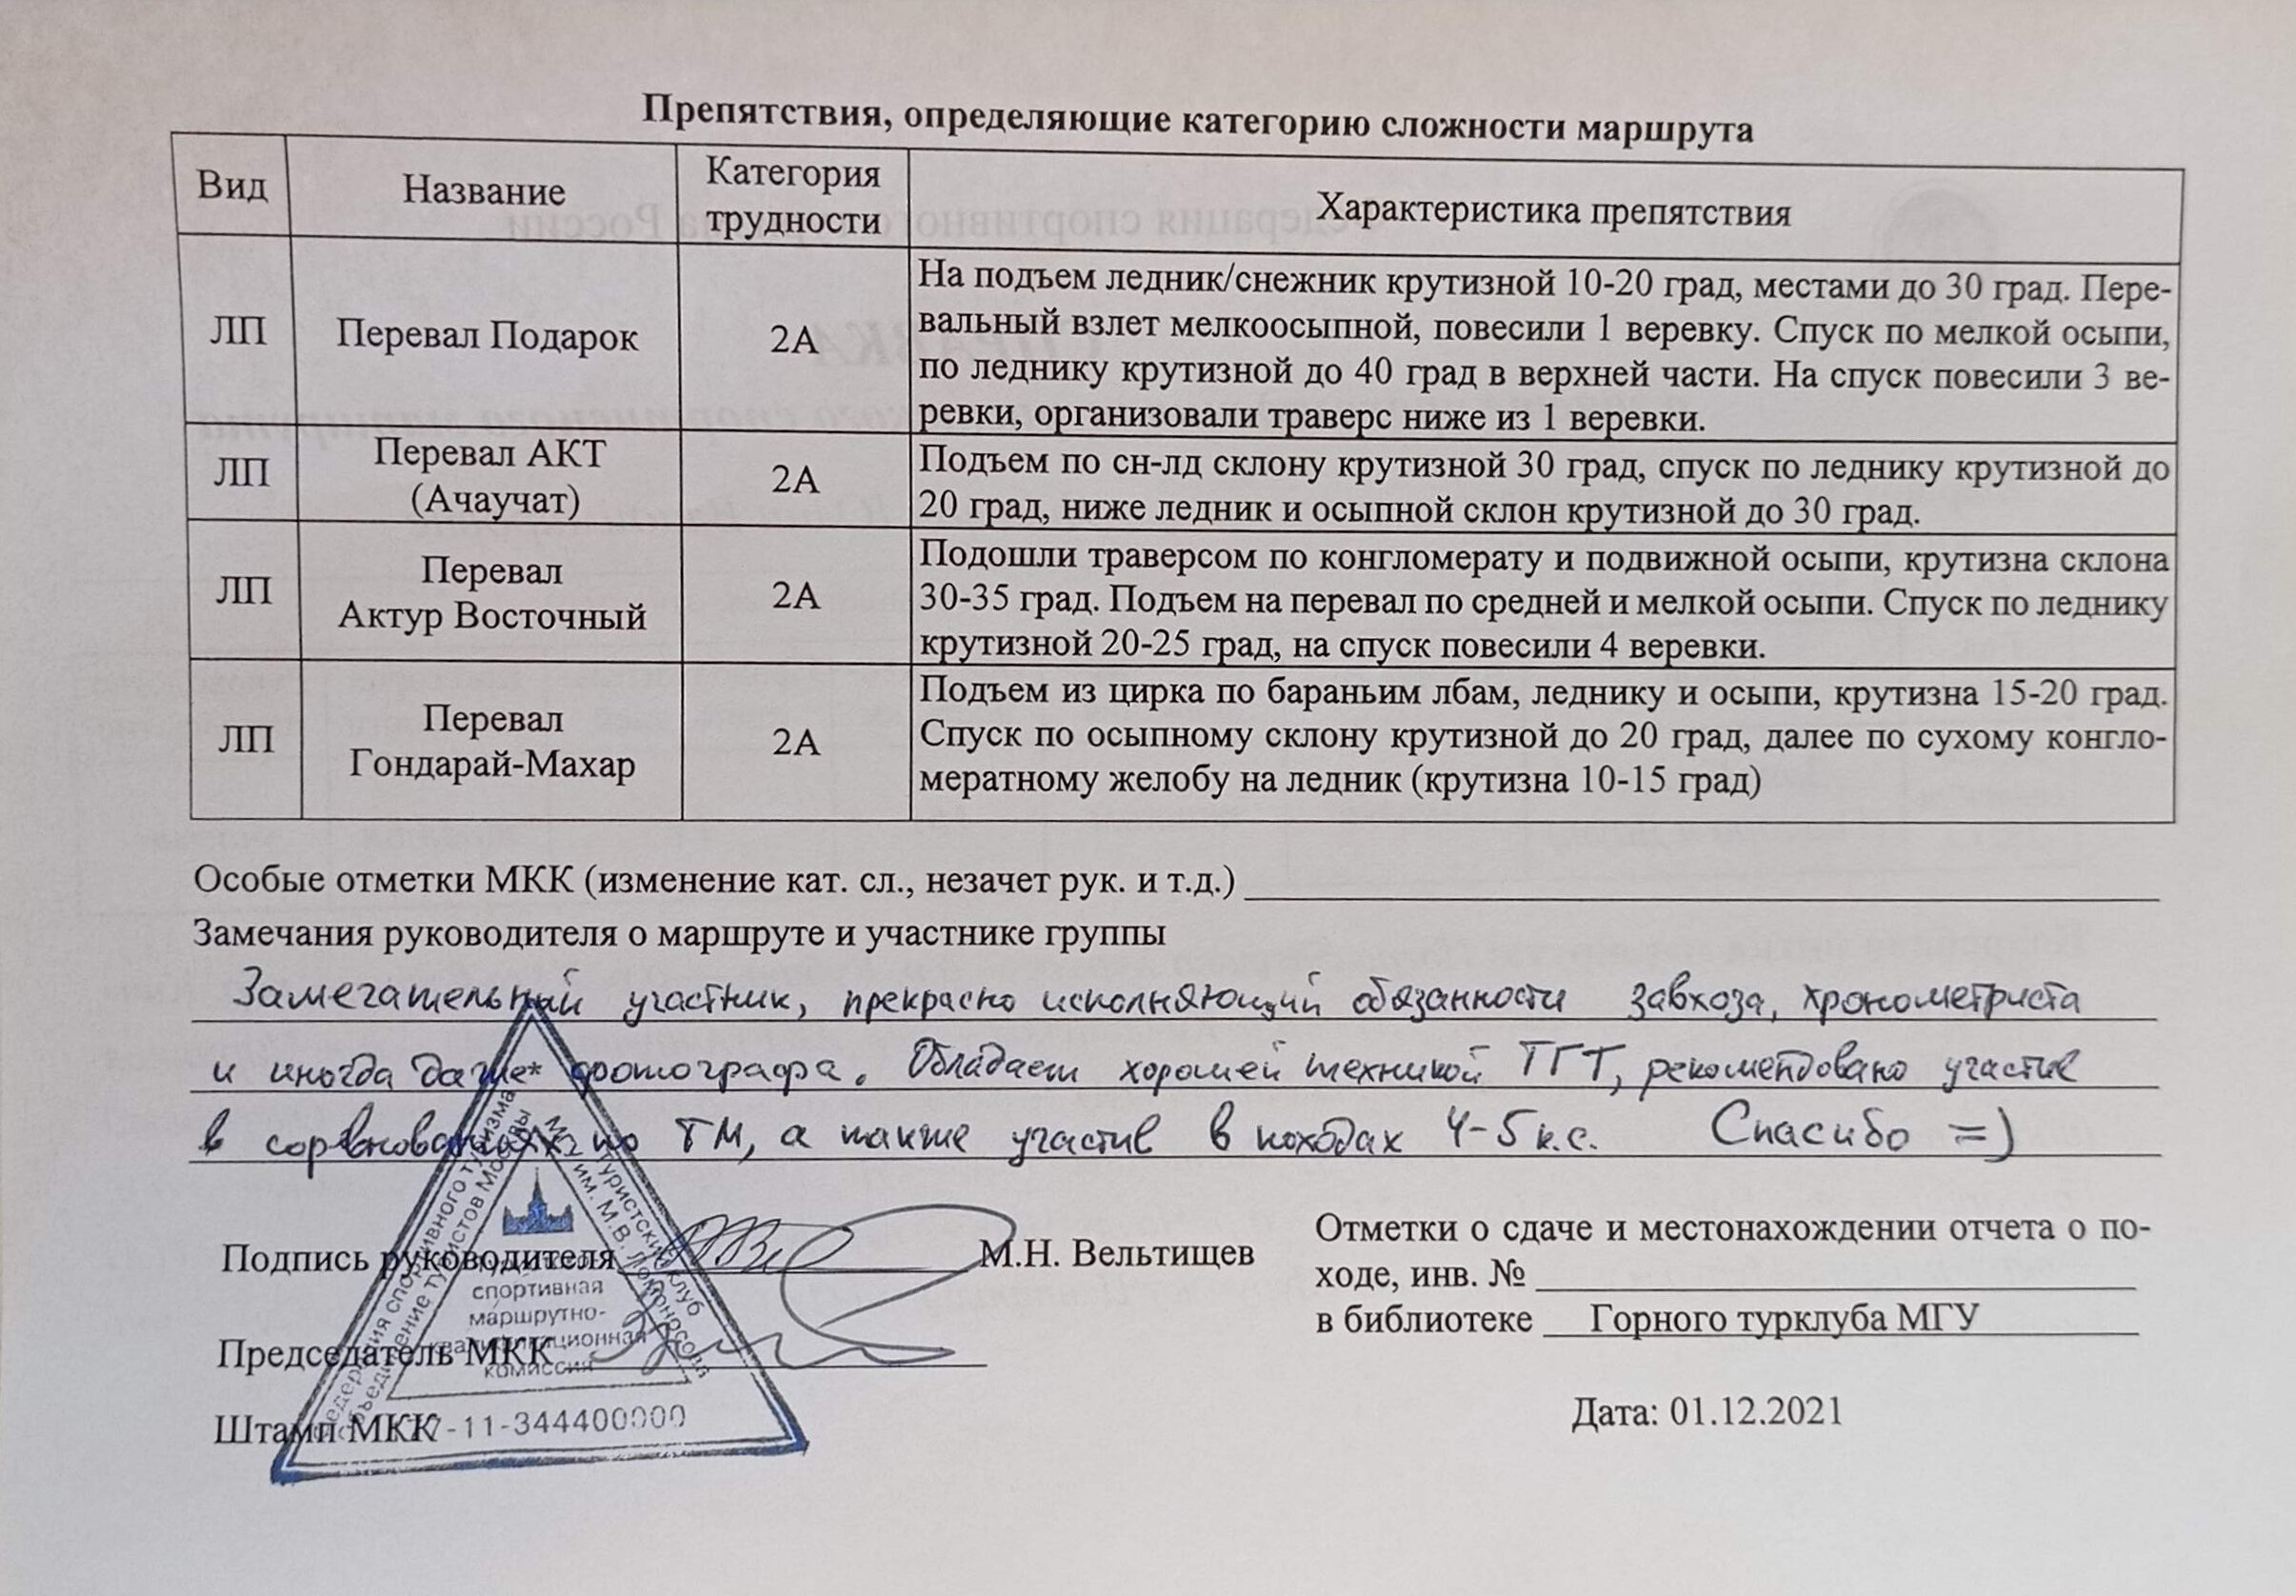 Препятствия, определяющие категорию сложности маршрута
Вид
Название
Категория
трудности
Характеристика препятствия
ЛП
Перевал Подарок
2А
На подъем ледник/снежник крутизной 10-20 град, местами до 30 град. Пере-
вальный взлет мелкоосыпной, повесили 1 веревку. Спуск по мелкой осыпи,
по леднику крутизной до 40 град в верхней части. На спуск повесили 3 ве-
ревки, организовали траверс ниже из 1 веревки.
ЛП
Перевал АКТ
(Ачаучат)
2А
Подъем по сн-лд склону крутизной 30 град, спуск по леднику крутизной до
20 град, ниже ледник и осыпной склон крутизной до 30 град.
ЛП
Перевал
Актур Восточный
2А
Подошли траверсом по конгломерату и подвижной осыпи, крутизна склона
30-35 град. Подъем на перевал по средней и мелкой осыпи. Спуск по леднику
крутизной 20-25 град, на спуск повесили 4 веревки.
ЛП
Перевал
Гондарай-Махар
2А
Подъем из цирка по бараньим лбам, леднику и осыпи, крутизна 15-20 град.
Спуск по осыпному склону крутизной до 20 град, далее по сухому конгло-
мератному желобу на ледник (крутизна 10-15 град)
Особые отметки МКК (изменение кат. сл., незачет рук. и т.д.)
Замечания руководителя о маршруте и участнике группы
Замечательный участник, прекрасно исполняющий обязанности завхоза, хронометриста
и иногда даже* фотографа. Обладает хорошей техникой ТГТ, рекомендовано участие
в соревнованиях по ТМ, а также участие в походах 4-5 к.с. Спасибо =)
Подпись руководителя
М.Н. Вельтищев
Председатель МКК
Штамп МКК
Федерация спортивного туризма
объединение туристов Москвы
Туристский клуб
им. М.В. Ломоносова
спортивная
маршрутно-
квалификационная
комиссия
7-11-344400000
Отметки о сдаче и местонахождении отчета о по-
ходе, инв. №
в библиотеке Горного турклуба МГУ
Дата: 01.12.2021